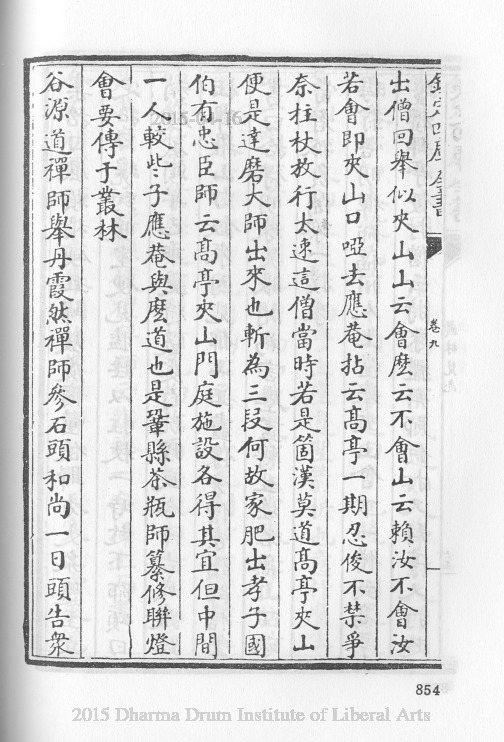 欽定四庫全書
卷九
出僧回舉似夾山山云會麽云不會山云賴汝不會汝
若會即夾山口啞去應菴拈云髙亭一期忍俊不禁爭
奈拄杖放行太速這僧當時若是箇漢莫道髙亭夾山
便是達磨大師出來也斬為三段何故家肥出孝子國
伯有忠臣師云髙亭夾山門庭施設各得其宜但中間
一人較些子應菴與麽道也是鞏縣茶瓶師纂修聯燈
會要傳于叢林
谷源道禪師舉丹霞然禪師參石頭和尚一日頭告衆
2015-04-16
854
2015 Dharma Drum Institute of Liberal Arts